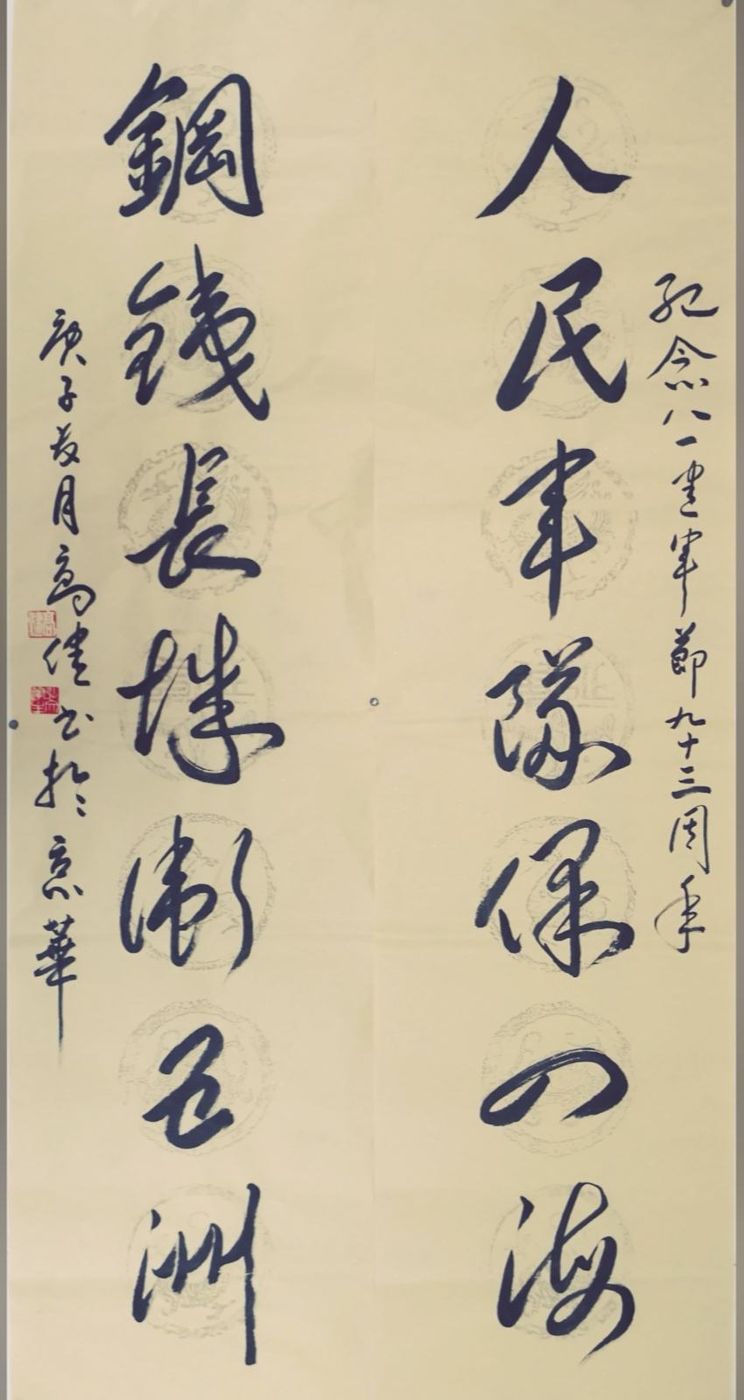 纪念八一建军節九十三周年
人民军隊保四海
鋼銕長城衛五洲
庚子夏月高健书於京華